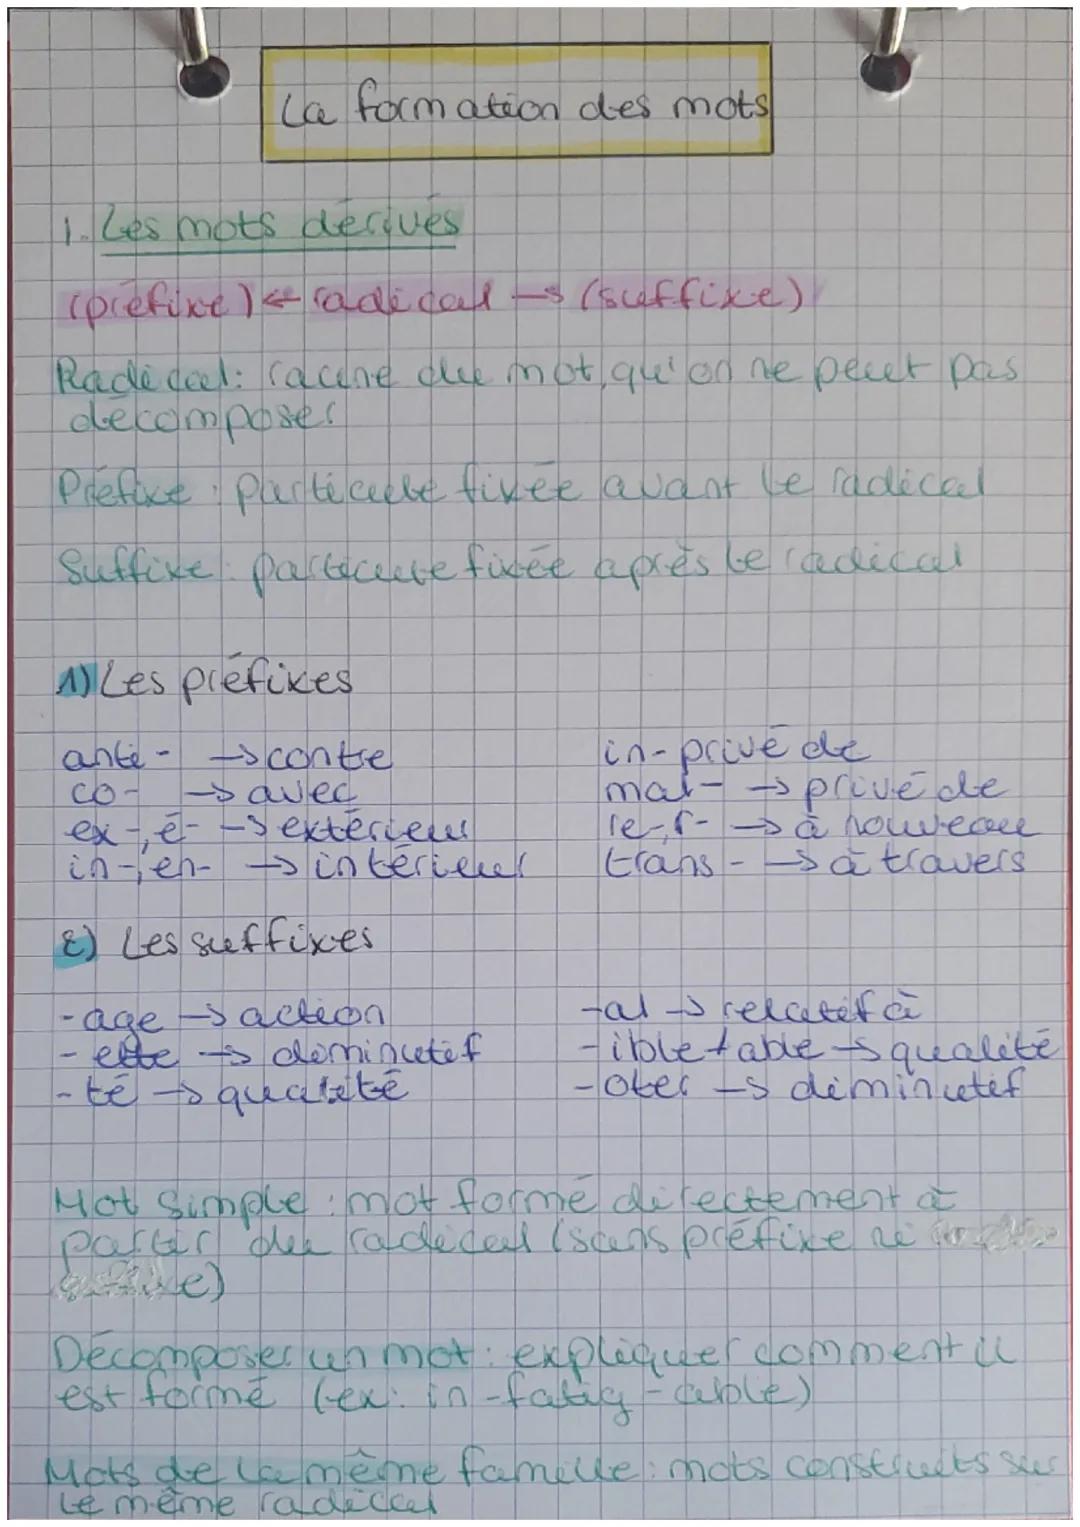 La formation des mots
1. Les mots dérivés
(préfixe) ← radical → (suffixe)
Radical: racine du mot, qu'on ne peut pas
décomposer
Préfixe : particule fixée avant le radical
Suffixe : particule fixée après le radical
1) Les préfixes
anti- → contre
co- → avec
ex-, é- → extérieur
in-, en- → intérieur
in- privé de
mal- → privé de
re-, r- → à nouveau
trans- → à travers
2) Les suffixes
-age → action
-ette → diminutif
-té → qualité
-al → relatif à
-ible + able → qualité
-oter → diminutif
Mot simple : mot formé directement à
partir du radical (sans préfixe ni
suffixe)
Décomposer un mot : expliquer comment il
est formé (ex: in-fatig-able)
Mots de la même famille : mots construits sur
le même radical